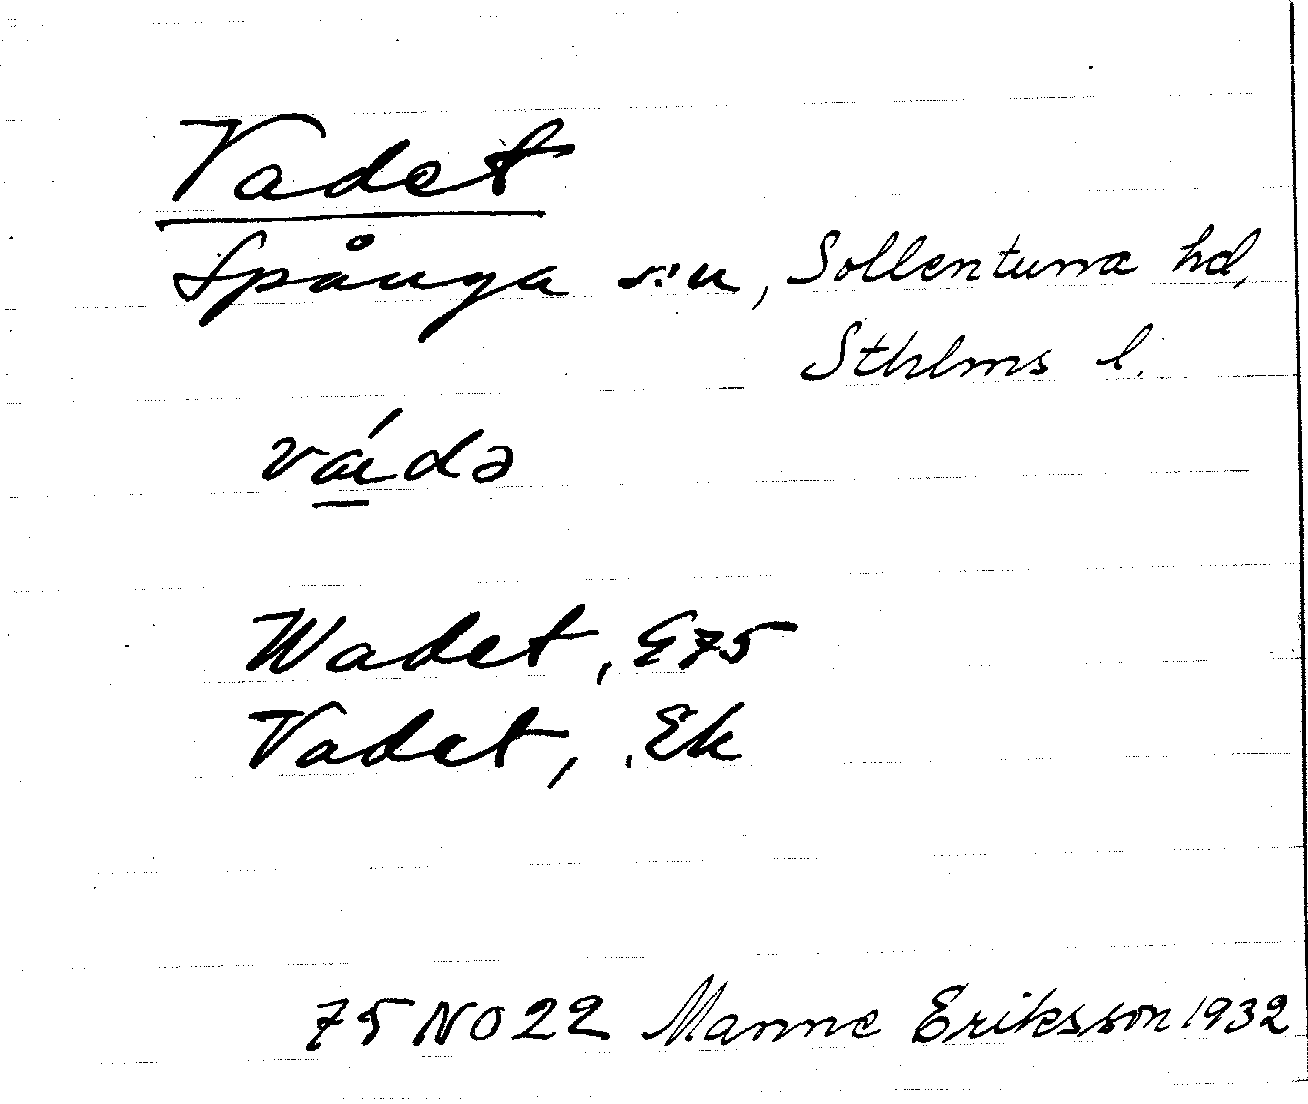 Vadet
Spånga sn, Sollentuna hd,
Sthlms l.
vádə
Wadet, E75
Vadet, Ek
75 NO 22 Manne Eriksson 1932